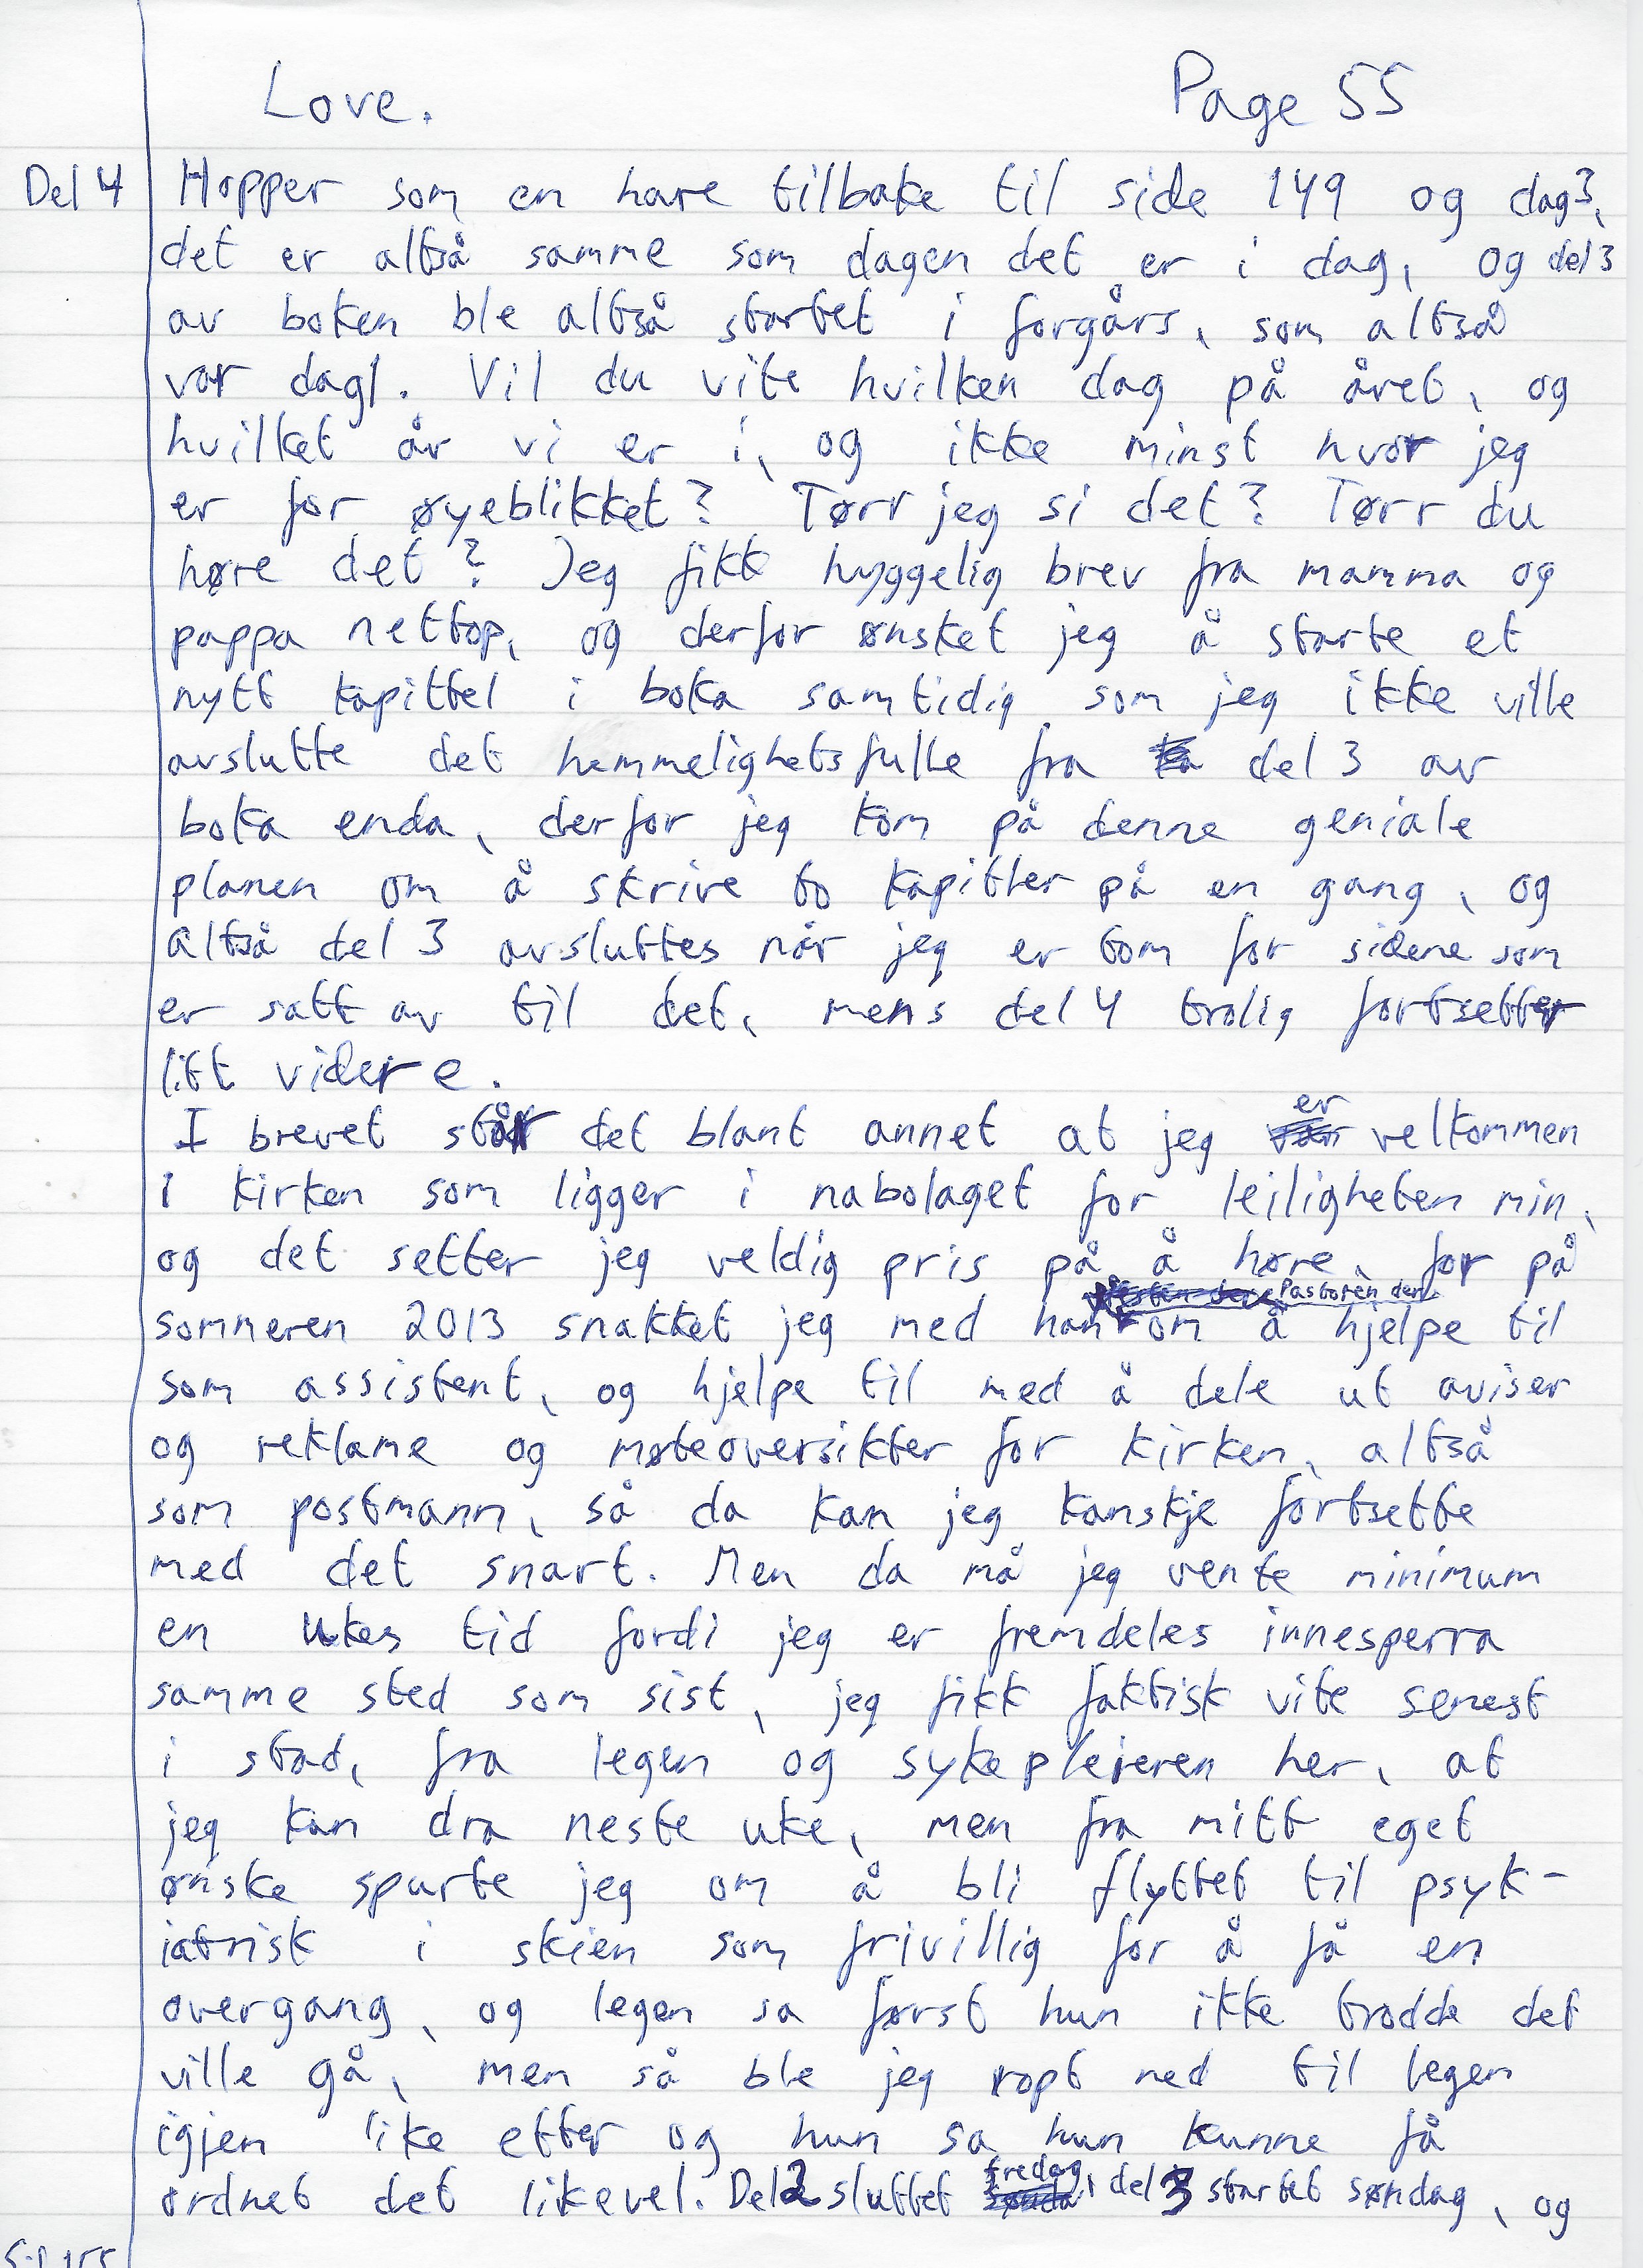 Love. Page 55
Del 4 Hopper som en hare tilbake til side 149 og dag 3,
det er altså samme som dagen det er i dag, og del 3
av boken ble altså startet i forgårs, som altså
var dag 1. Vil du vite hvilken dag på året, og
hvilket år vi er i, og ikke minst hvor jeg
er for øyeblikket? Tørr jeg si det? Tørr du
høre det? Jeg fikk hyggelig brev fra mamma og
pappa nettop, og derfor ønsket jeg å starte et
nytt kapittel i boka samtidig som jeg ikke ville
avslutte det hemmelighetsfulle fra del 3 av
boka enda, derfor jeg kom på denne geniale
planen om å skrive to kapitler på en gang, og
altså del 3 avsluttes når jeg er tom for sidene som
er satt av til det, mens del 4 trolig fortsetter
litt videre.
I brevet står det blant annet at jeg er velkommen
i kirken som ligger i nabolaget for leiligheten min,
og det setter jeg veldig pris på å høre, for på
Pastoren der
sommeren 2013 snakket jeg med han om å hjelpe til
som assistent, og hjelpe til med å dele ut aviser
og reklame og møteoversikter for kirken, altså
som postmann, så da kan jeg kanskje fortsette
med det snart. Men da må jeg vente minimum
en ukes tid fordi jeg er fremdeles innesperra
samme sted som sist, jeg fikk faktisk vite senest
i stad, fra legen og sykepleieren her, at
jeg kan dra neste uke, men fra mitt eget
ønske spurte jeg om å bli flyttet til psyk-
iatrisk i skien som frivillig for å få en
overgang, og legen sa først hun ikke trodde det
ville gå, men så ble jeg ropt ned til legen
igjen like etter og hun sa hun kunne få
ordnet det likevel. Del 2 sluttet fredag, del 3 startet søndag, og